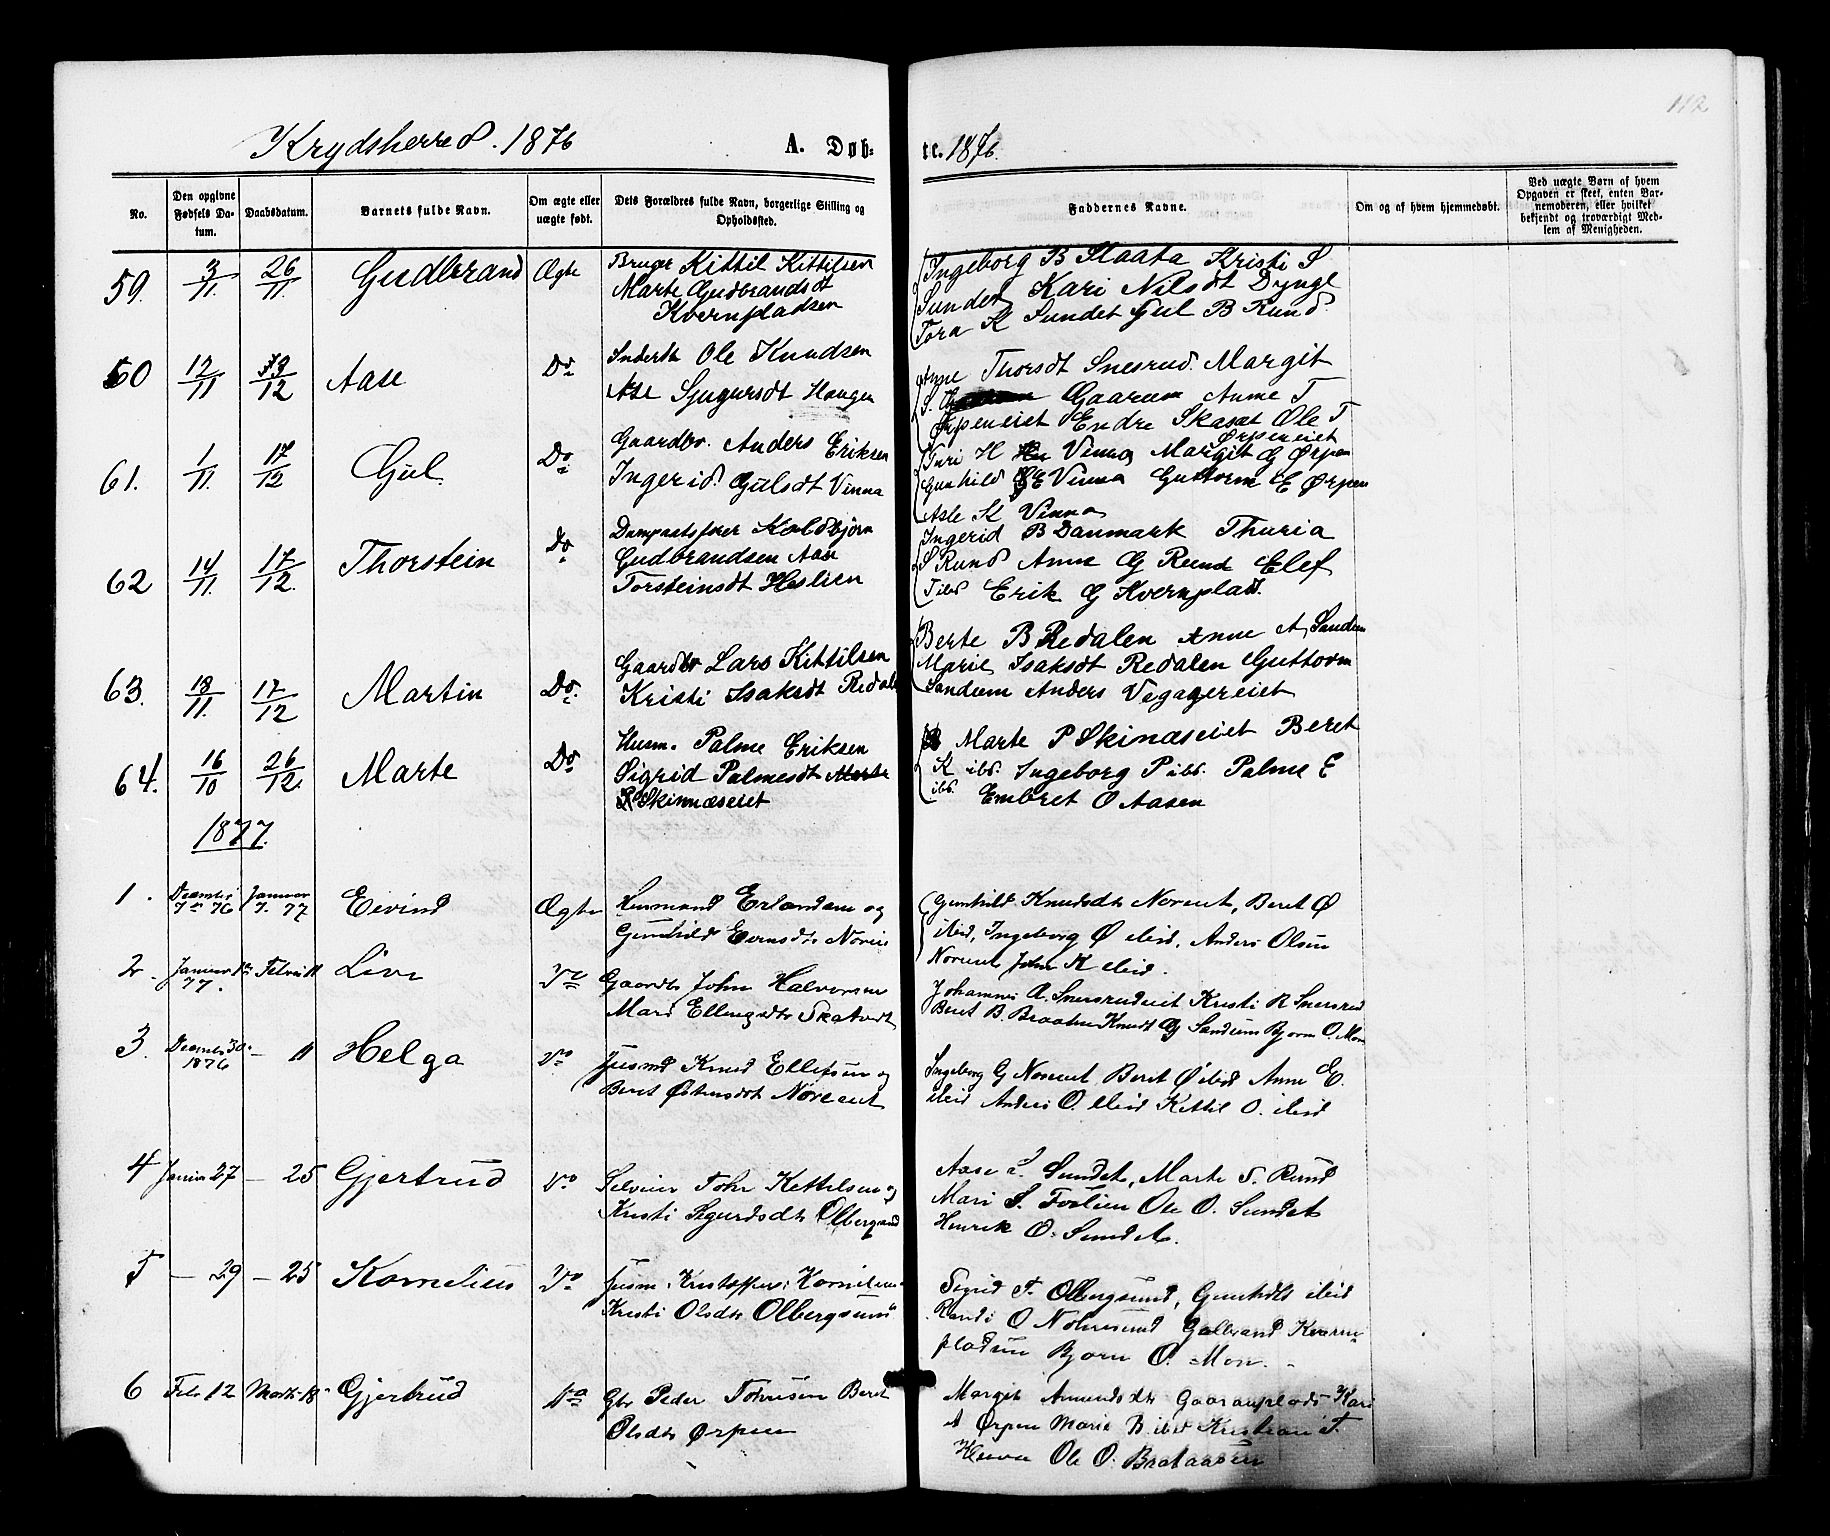 112
Krydsherred. 1876
A. Døb-
te. 1876.
No.
Den opgivne Fødsels Da-tum.
Daabsdatum.
Barnets fulde Navn.
Om ægte eller uægte født.
Dets Forældres fulde Navn, borgerlige Stilling og Opholdssted.
Faddernes Navne.
Om og af hvem hjemmedøbt.
Ved uægte Børn af hvem Opgaven er skeet, enten Bar-nemoderen, eller hvilket bekjendt og troværdigt Med-lem af Menigheden.
59. 3/11. 26/11. Gudbrand Ægte Bruger Kittil Kittilsen
Marte Gudbrandsdt
Kvernpladsen
Ingeborg B Staata Kristi S
Sundet Kari Nilsdt
Tora K Sundet Gul B Rund
60 12/11 /12 Aase Do Ole Knudsen
Ase Haugen
Anne Thorsdt Snesrud Margit
S. Gaarum Anne T
Ørpeneiet Endre Ole T
Ørpeneiet
61. 1/11. 17/12 Gul Do Gaardbr. Anders Eriksen
Ingerid Gulsdt Vinna
Turi H Vinna Margit G Ørpen
Gunhild E Vinna Guttorm E Ørpen
Asle K Vinna
62 14/11. 17/12. Thorstein Do Koldbjørn
Gudbrandsen Aase
Torsteinsdt Heslien
Ingerid B Danmark Thuria
S Rund Anne G Rund Elef
Erik G Kvernplads.
63. 18/11. 17/12 Martin Do. Gaardbr Lars Kittilsen
Kristi Isaksdt Redalen
Berte B Redalen Anne A Sandum
Marie Isaksdt Redalen Guttorm
Sandum Anders
64. 16/10 26/12. Marte Do Husm. Palme Eriksen
Sigrid Palmesdt Marte
Skinnæseiet
Marte P Skinæseiet Beret
K ibd. Ingeborg P ibd. Palme E
ibd. Embret O Aasen
1877.
1. December 7de 76 Januar 7. 77 Eivind Ægte Hermand Erlandsen og
Gunhild
Gunhild Knudsdtr Noreiet, Beret Ø
ibid, Ingeborg Ø ibid, Anders Olsen
Noreiet John K ibid.
2. Januar 1 77. Febru 11 Live Do Gaardbr John Halvorsen
Mari Ellingsdtr
Johannes A. Snersrudeiet Kristi R Snersrud
Beret B. Braaten Knudt G Sandum Bjørn O. Moen
3. December 30. 1876 — 11 Helga Do Husmd Knud Ellefsen og
Beret Østensdt Noreeiet
Ingeborg G Noreiet Beret Ø ibid Anne E.
ibid Anders O. ibid Kittil O. ibid
4 Januar 27 — 25 Gjertrud Do Selveier Tohr Kettilsen og
Kristi Segurdsdtr
Aase Sundet, Marte S. Rund
Mari S. Ole O. Sundet
Henrik O. Sundet.
5 — 29 — 25 Kornelius Do Husm. Kristoffer Kornelius
Kristi Olsdtr Olbergsund
Sigrid T. Olbergsund, Gunhild ibid
Randi O Nohresund Gulbrand Kvern-
pladsen Bjørn O. Moen.
6 Febr 12 Marts 18 Gjertrud Do Gbr Peder Tohresen Beret
Olsdtr Ørpen
Margit Amundsdtr Kari
A Ørpen Marie B. ibid Kristian T.
Ole O. Brataasen